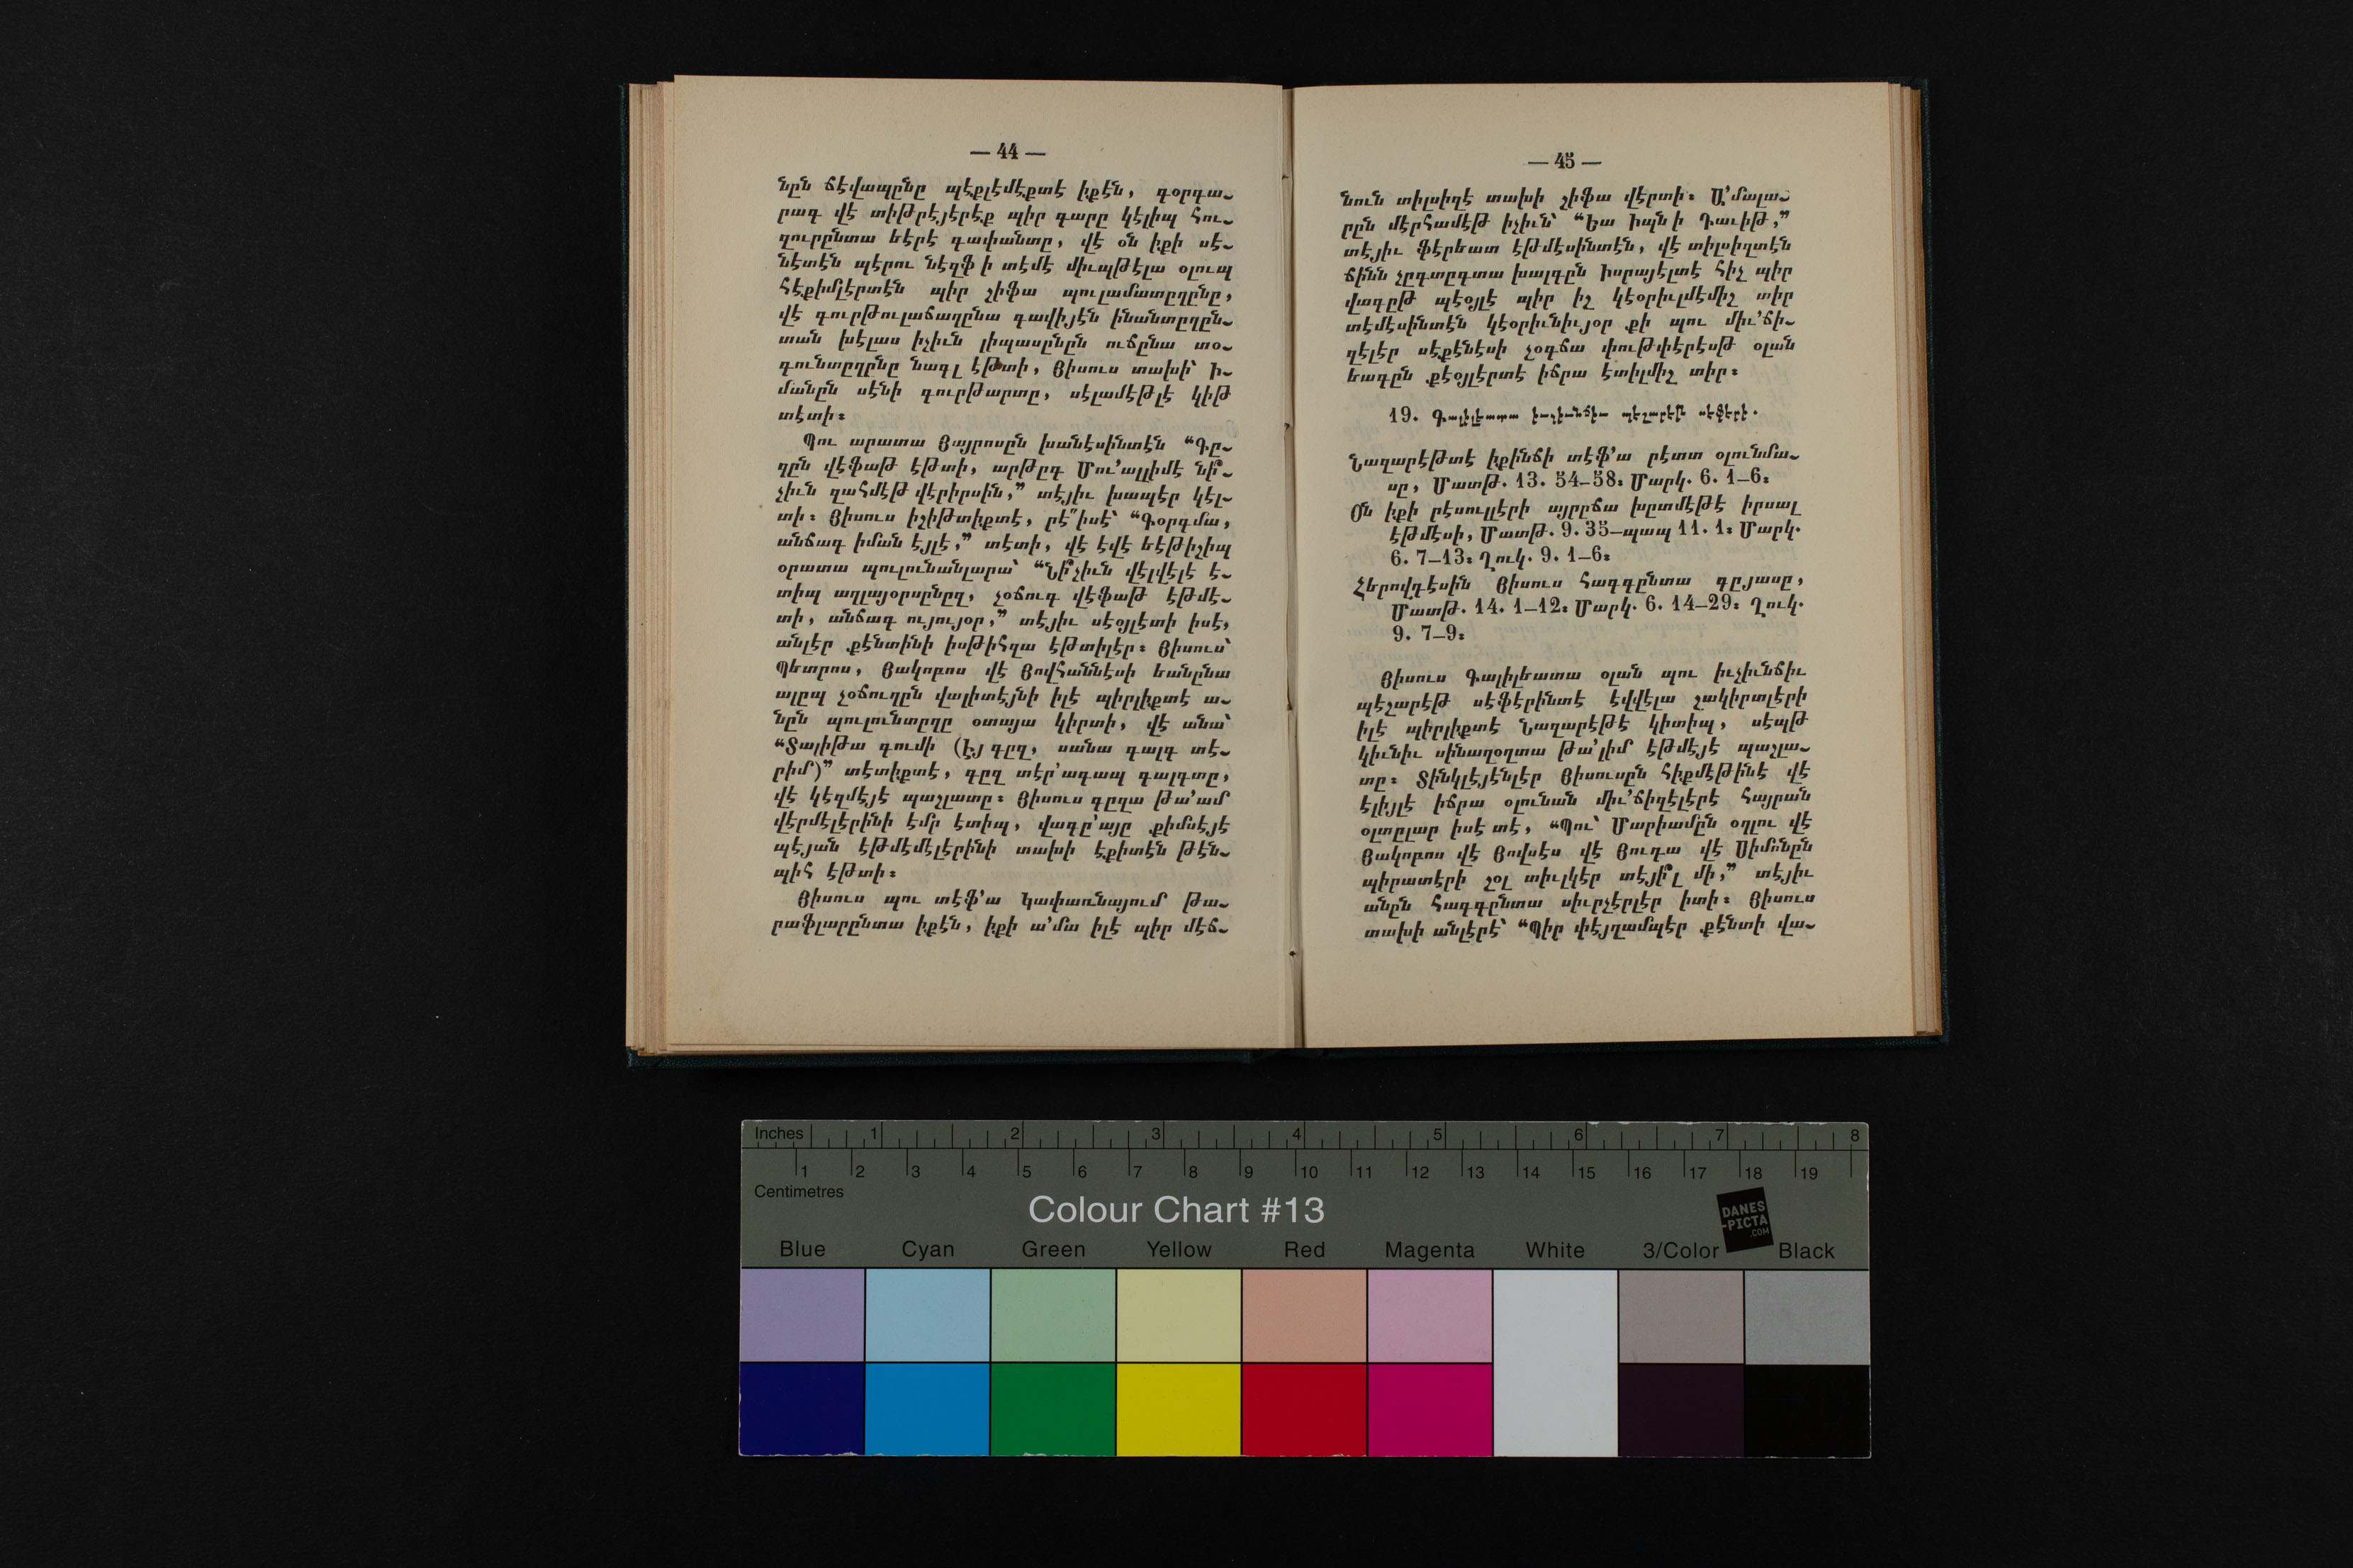 — 44 —
նըն ճէվապընը պէքլէմէքտէ իքէն, գօրգա֊
րագ վէ տիթրէյէրէք պիր գարը կէլիպ հու֊
զուրընտա եէրէ գափանտը, վէ օն իքի սէ֊
նէտէն պէրու նէզֆ ի տէմէ միւպթէլա օլուպ
հէքիմլէրտէն պիր շիֆա պուլամատըղընը,
վէ գուրթուլաճաղընա գավիյէն ինանտըղըն֊
տան խէլաս իչիւն լիպասընըն ուճընա տօ֊
գունտըղընը նագլ էթտի, Յիսուս տախի՝ ի֊
մանըն սէնի գուրթարտը, սէլամէթլէ կիթ
տէտի։
Պու արատա Յայրոսըն խանէսինտէն “Գը֊
զըն վէֆաթ էթտի, արթըգ Մու՚ալլիմէ նի՞֊
չիւն զահմէթ վէրիրսին,” տէյիւ խապէր կէլ֊
տի։ Յիսուս իշիթտիքտէ, րէ՚իսէ՝ “Գօրգմա,
անճագ իման էյլէ,” տէտի, վէ էվէ եէթիշիպ
օրատա պուլունանլարա՝ “Նի՞չիւն վէլվէլէ է֊
տիպ աղլայօրսընըզ, չօճուգ վէֆաթ էթմէ֊
տի, անճագ ույույօր,” տէյիւ սէօյլէտի իսէ,
անլէր քէնտինի իսթիհզա էթտիլէր։ Յիսուս՝
Պետրոս, Յակոբոս վէ Յովհաննէսի եանընա
ալըպ չօճուղըն վալիտէյնի իլէ պիրլիքտէ ա֊
նըն պուլունտըղը օտայա կիրտի, վէ անա՝
“Տալիթա գումի (էյ գըզ, սանա գալգ տէ֊
րիմ)” տէտիքտէ, գըզ տէր՚ագապ գալգտը,
վէ կէզմէյէ պաշլատը։ Յիսուս գըզա թա՚ամ
վէրմէլէրինի էմր էտիպ, վագը՚այը քիմսէյէ
պէյան էթմէմէլէրինի տախի էքիտէն թէն֊
պիհ էթտի։
Յիսուս պու տէֆ՚ա Կափառնայում թա֊
րաֆլարընտա իքէն, իքի ա՚մա իլէ պիր մէճ֊
— 45 —
նուն տիլսիզէ տախի շիֆա վէրտի։ Ա՚մալա֊
րըն մէրհամէթ իչիւն՝ “Եա Իպն ի Դաւիթ,”
տէյիւ ֆէրեատ էթմէսինտէն, վէ տիլսիզտէն
ճինն չըգտըգտա խալգըն Իսրայէլտէ հիչ պիր
վագըթ պէօյլէ պիր իշ կէօրիւլմէմիշ տիր
տէմէսինտէն կէօրիւնիւյօր քի պու միւ՚ճի֊
զէլէր սէքէնէսի չօգճա փութփէրէսթ օլան
եագըն քէօյլէրտէ իճրա էտիլմիշ տիր։
19. Գալիլեատա իւչիւնճիւ պէշարէթ սէֆէրի.
Նազարէթտէ իքինճի տէֆ՚ա րէտտ օլունմա֊
սը, Մատթ. 13. 54–58։ Մարկ. 6. 1–6։
Օն իքի րէսուլլէրի այրըճա խըտմէթէ իրսալ
էթմէսի, Մատթ. 9. 35–պապ 11. 1։ Մարկ.
6. 7–13։ Ղուկ. 9. 1–6։
Հերովդէսին Յիսուս հագգընտա գըյասը,
Մատթ. 14. 1–12։ Մարկ. 6. 14–29։ Ղուկ.
9. 7–9։
Յիսուս Գալիլեատա օլան պու իւչիւնճիւ
պէշարէթ սէֆէրինտէ էվվէլա շակիրտլէրի
իլէ պիրլիքտէ Նազարէթէ կիտիպ, սէպթ
կիւնիւ սինաղօղտա թա՚լիմ էթմէյէ պաշլա֊
տը։ Տինկլէյէնլէր Յիսուսըն հիքմէթինէ վէ
էլիյլէ իճրա օլունան միւ՚ճիզէլէրէ հայրան
օլտըլար իսէ տէ, “Պու՝ Մարիամըն օղլու վէ
Յակոբոս վէ Յովսէս վէ Յուդա վէ Սիմոնըն
պիրատէրի շօլ տիւլկէր տէյի՞լ մի,” տէյիւ
անըն հագգընտա սիւրչէրլէր իտի։ Յիսուս
տախի անլէրէ՝ “Պիր փէյղամպէր քէնտի վա֊
Inches 1 2 3 4 5 6 7 8
1 2 3 4 5 6 7 8 9 10 11 12 13 14 15 16 17 18 19
Centimetres
Colour Chart #13
DANES
-PICTA
.COM
Blue Cyan Green Yellow Red Magenta White 3/Color Black